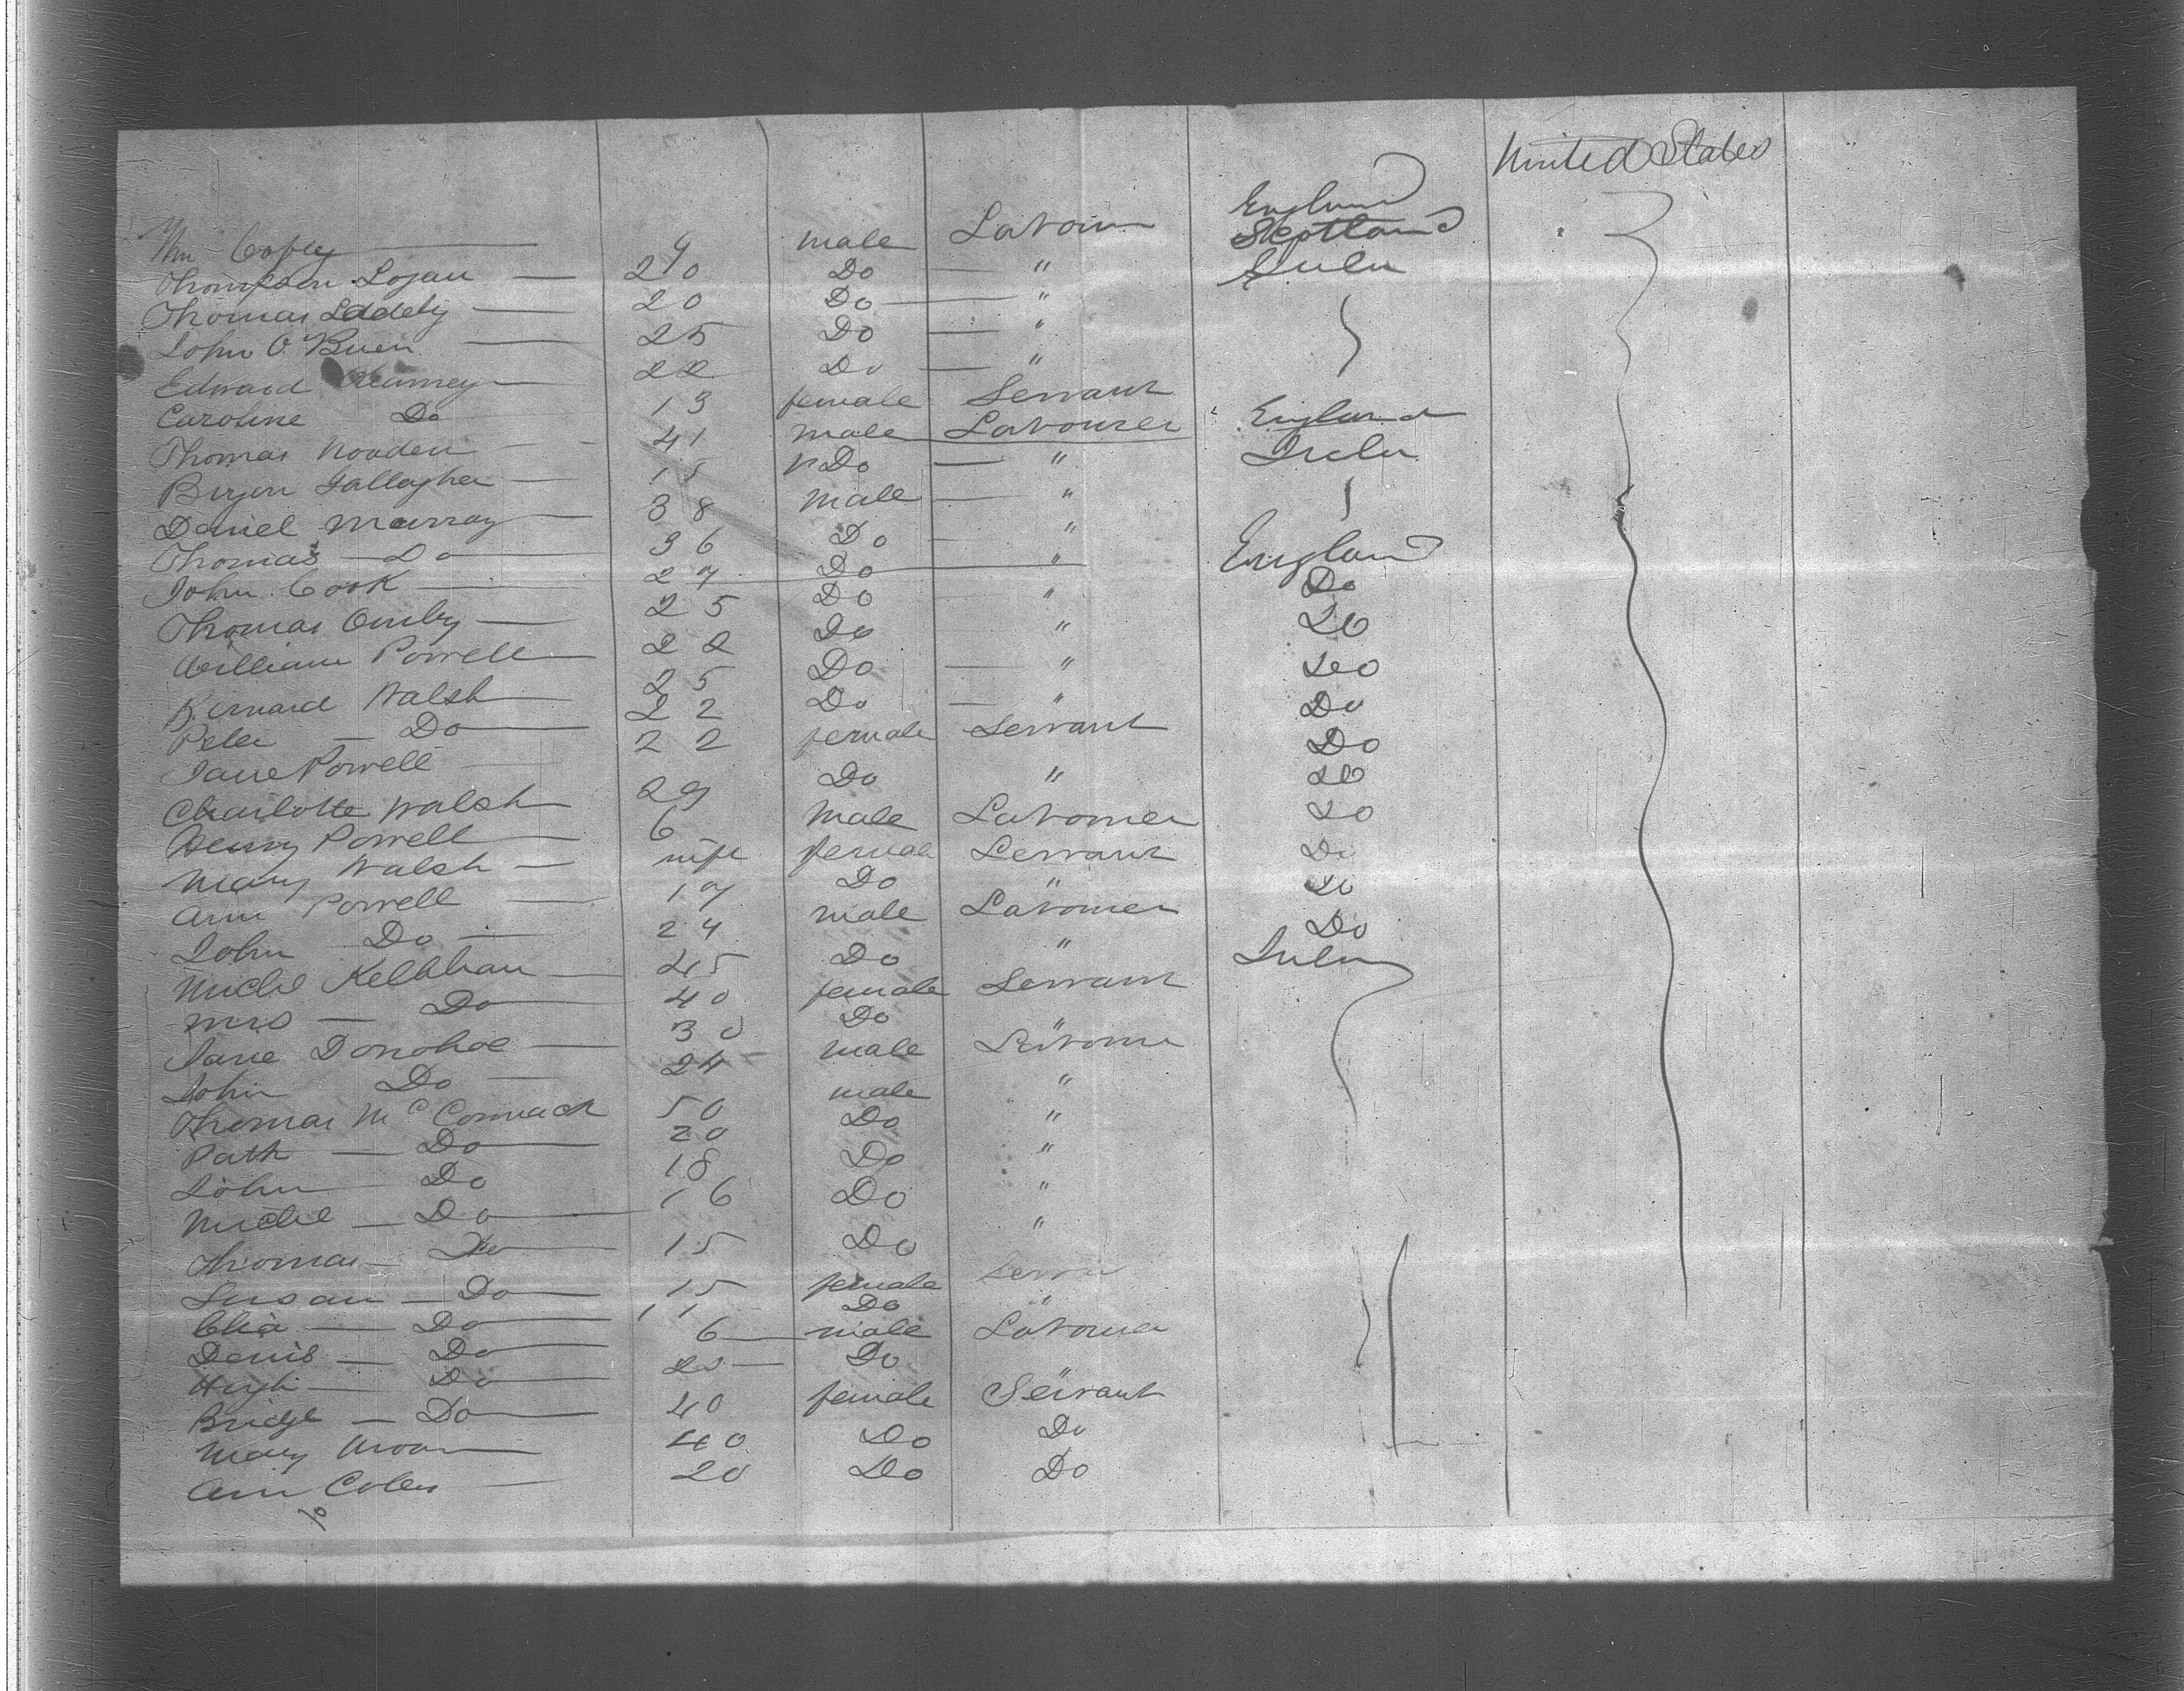 United States
Wm Copley 9 male Labour England
Thompson Logan 20 Do " Scotland
Thomas Leddely 20 Do " Irelan
John O'Brien 25 Do "
Edward Kearney 22 Do "
Caroline Do 13 female Servant
Thomas Nooden 41 male Labourer England
Bryon Gallagher 15 Do " Irelan
Daniel Murray 38 male "
Thomas Do 36 Do "
John Cook 27 Do " England
Thomas Omley 25 Do " Do
William Powell 22 Do " Do
Bernard Walsh 25 Do " Do
Peter Do 22 Do " Do
Jane Powell 22 female Servant Do
Charlotte Walsh 29 Do " Do
Henry Powell 6 male Labourer Do
Mary Walsh wife female Servant Do
Ann Powell 17 Do " Do
John Do 24 male Labourer Do
Michl 45 Do " Irelan
Mrs Do 40 female Servant
Jane Donohoe 30 Do "
John Do 24 male Labourer
Thomas McCormack 50 male "
Patk Do 20 Do "
John Do 18 Do "
Michl Do 16 Do "
Thomas Do 15 Do "
Susan Do 15 female Serva
Do 11 Do "
Denis Do 6 male Labourer
Hugh Do 20 Do
Bridge Do 40 female Servant
Mary 40 Do Do
Ann Coley 20 Do Do